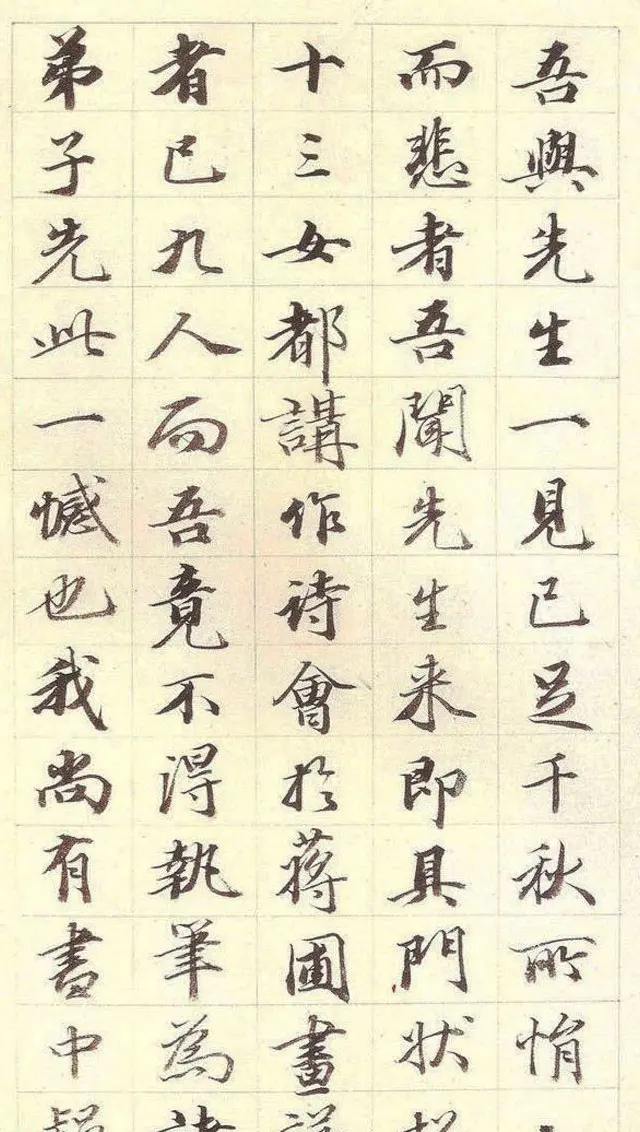 吾與先生一見已足千秋所悁
而悲者吾聞先生来即具門状
十三女都講作詩會於蔣圃畫
者已九人而吾竟不得執筆為
弟子先此一憾也我尚有書中